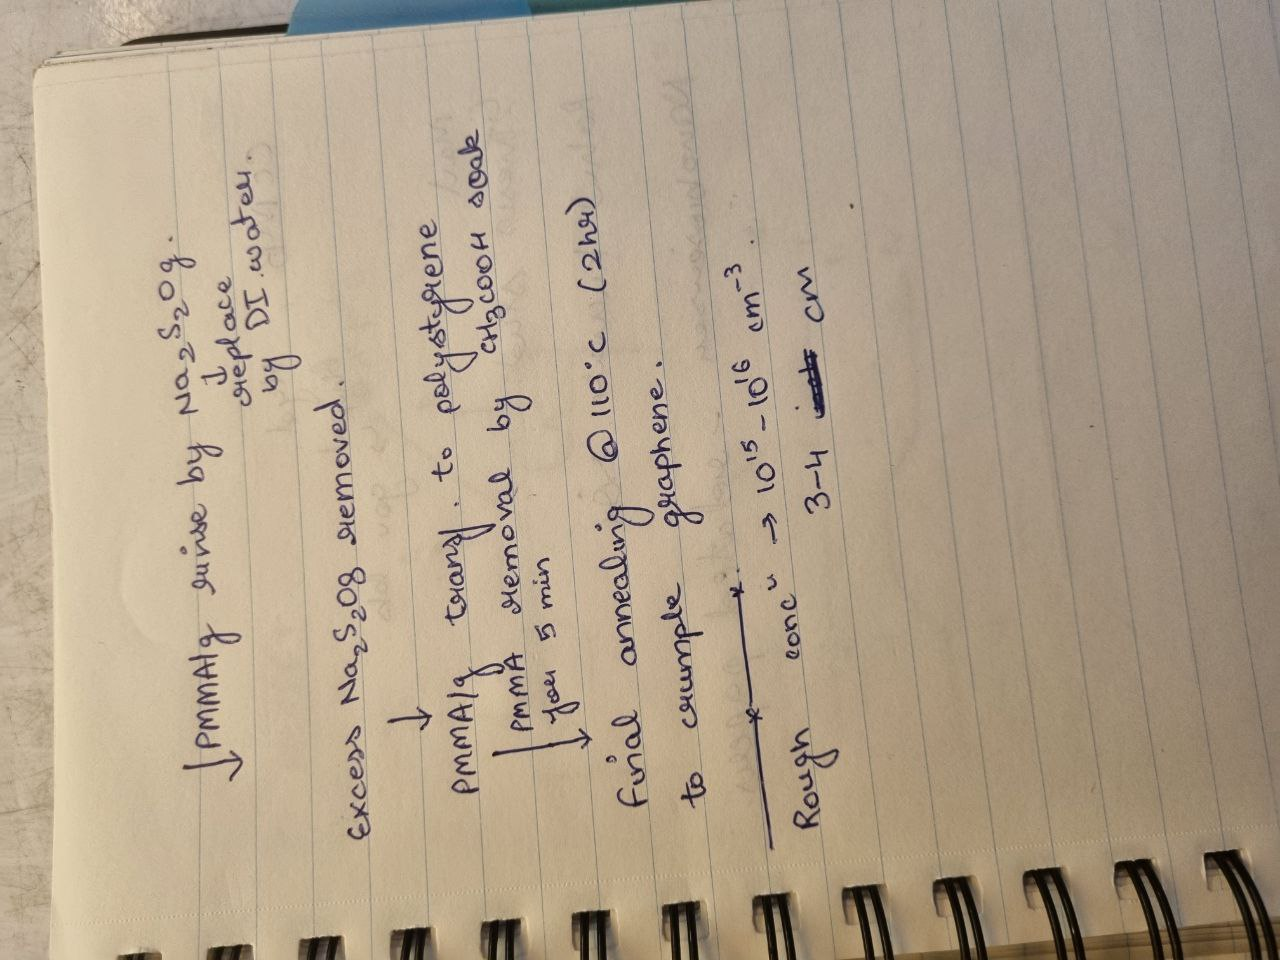 ↓ PMMA/g rinse by Na2S2O8.
↓
replace
by DI. water.
Excess Na2S2O8 removed.
↓
PMMA/g transf. to polystyrene
↓ PMMA removal by CH3COOH soak
for 5 min
Final annealing @ 110°C (2hr)
to crumple graphene.
Rough concn → 10^15 - 10^16 cm^-3.
3-4 cm